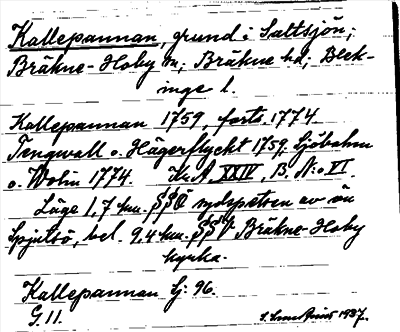 Kallepannan, grund i Saltsjön;
Bräkne-Hoby sn; Bräkne hd; Blek-
inge l.
Kallepannan 1759, forts. 1774
Tengwall o. Hägerflycht 1759. Sjöbohm
o. Wolin 1774. Kr.A. XXIV, B. N:o VI.
Läge 1,7 km. SSÖ sydspetsen av ön
Spjutsö, bel. 9,4 km. Bräkne-Hoby
kyrka.
Kallepannan Ej: 96.
G 11.
1937.